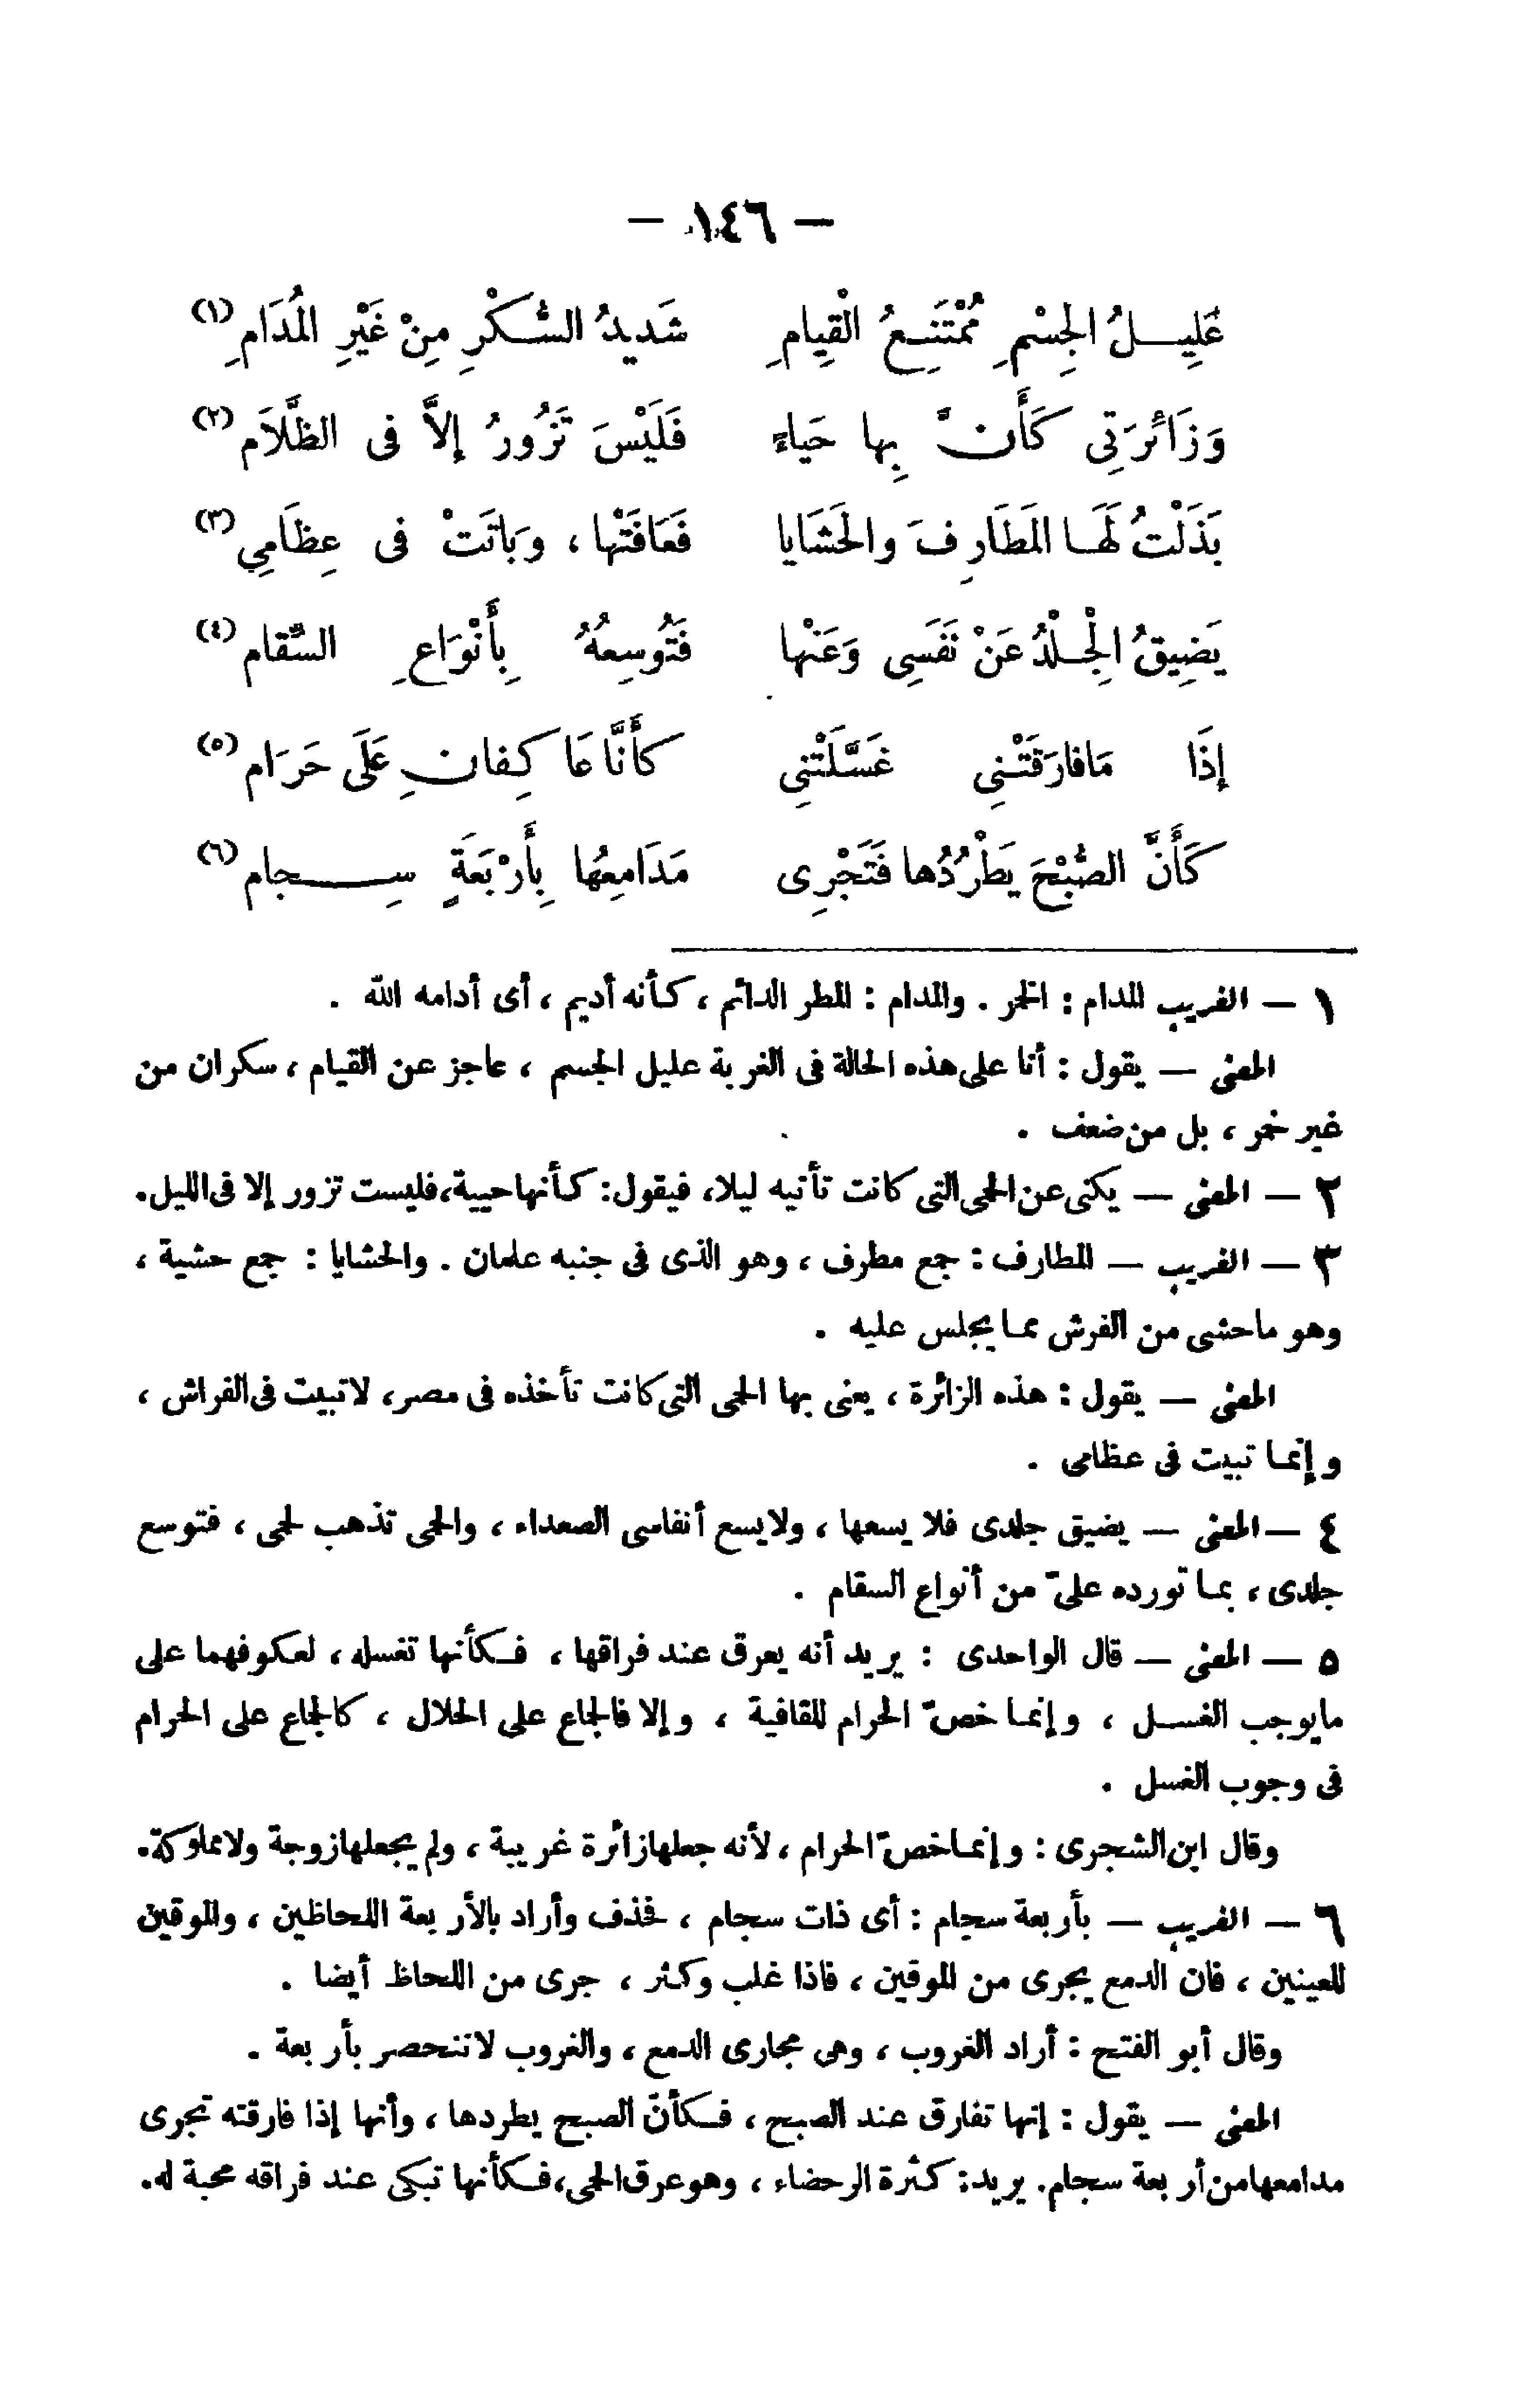 — ١٤٦ —
عَلِيـــلُ الجِسْمِ مُمْتَنِـعُ الْقِيامِ شَدِيدُ السُّكْرِ مِنْ غَيْرِ المُدَامِ (١)
وَزَائرَتِى كَأَنَّ بِها حَياءً فَلَيْسَ تَزُورُ إلاَّ فى الظَّلاَمِ (٢)
بَذَلْتُ لَهَـا المَطَارِفَ والحَشَايا فَعَافَتْها ، وبَاتَتْ فى عِظَامِي (٣)
يَضِيقُ الْجِـلْدُ عَنْ نَفَسِى وَعَنْها فَتُوسِعُهُ بِأَنْوَاعِ السَّقام (٤)
إذَا مَافارَقَتْـنِى غَسَّلَتْنِى كَأَنَّا عَاكِفانِ عَلَى حَرَام (٥)
كَأَنَّ الصُّبْحَ يَطْرُدُها فَتَجْرِى مَدَامِعُها بِأَرْبَعَةٍ سِــــجام (٦)
١ — الغريب المدام : الخمر . والمدام : المطر الدائم ، كأنه أديم ، أى أدامه الله .
المعنى — يقول : أنا على هذه الحالة فى الغربة عليل الجسم ، عاجز عن القيام ، سكران من
غير خمر ، بل من ضعف .
٢ — المعنى — يكنى عن الحمى التى كانت تأتيه ليلا، فيقول: كأنها حيية، فليست تزور إلا فى الليل.
٣ — الغريب — المطارف : جمع مطرف ، وهو الذى فى جنبه علمان . والحشايا : جمع حشية ،
وهو ماحشى من الفرش ممـا يجلس عليه .
المعنى — يقول : هذه الزائرة ، يعنى بها الحمى التى كانت تأخذه فى مصر، لاتبيت فى الفراش ،
وإنمـا تبيت فى عظامى .
٤ — المعنى — يضيق جلدى فلا يسعها ، ولايسع أنفاسى الصعداء ، والحمى تذهب لحمى ، فتوسع
جلدى ، بمـا تورده علىّ من أنواع السقام .
٥ — المعنى — قال الواحدى : يريد أنه يعرق عند فراقها ، فـكأنها تغسله ، لعكوفهما على
مايوجب الغســل ، وإنمـا خصّ الحرام للقافية ، وإلا فالجماع على الحلال ، كالجماع على الحرام
فى وجوب الغسل .
وقال ابن الشجرى : وإنمـاخصّ الحرام ، لأنه جعلهازائرة غريبة ، ولم يجعلهازوجة ولامملوكة.
٦ — الغريب — بأربعة سجام : أى ذات سجام ، فحذف وأراد بالأربعة اللحاظين ، والموقين
للعينين ، فان الدمع يجرى من الموقين ، فاذا غلب وكثر ، جرى من اللحاظ أيضا .
وقال أبو الفتح : أراد الغروب ، وهى مجارى الدمع ، والغروب لاتنحصر بأربعة .
المعنى — يقول : إنها تفارق عند الصبح ، فـكأنّ الصبح يطردها ، وأنها إذا فارقته تجرى
مدامعهامن أربعة سجام. يريد: كثرة الرحضاء ، وهو عرق الحمى، فـكأنها تبكى عند فراقه محبة له.